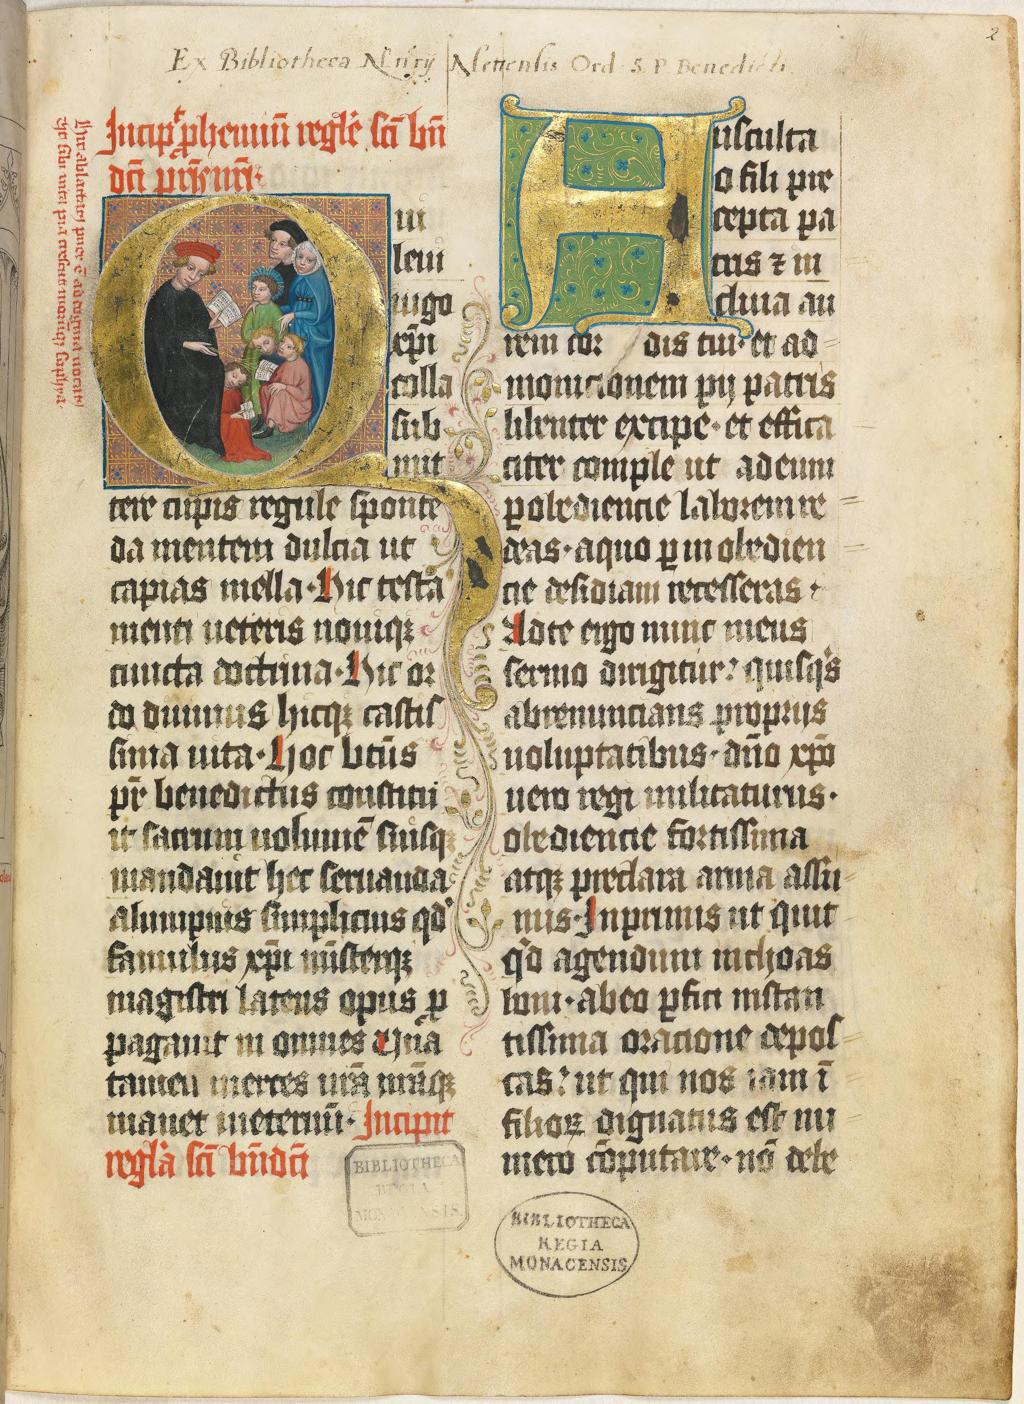 Ex Bibliotheca Metensis Ord. S. P. Benedicti.
2
Incip̄t p̱hemiū regl̄e sc̄i bn̄
dc̄i
ui
leni
iugo
xp̄i
colla
sub
mit
tere cupis regule sponte
da mentem dulcia ut
capias mella. Hic testa
menti ueteris nouiqꝫ
cuncta doctrina. Hic or
do diuinus hicqꝫ castis
sima uita. Hoc bn̄s
pr̄ benedictus constitu
it sacrum uolumē suisqꝫ
mandauit hec seruanda
alumpnis simplicius qd̄
famulus xp̄i mīsterqꝫ
magistri latens opus ꝑ
pagauit in omnes Una
tamen merces
manet ineternū. Incipit
regl̄a sc̄i bn̄dc̄i
Ausculta
o fili pre
cepta pa
tris ⁊ in
clina au
rem cordis tui. et ad
monicionem pij patris
libenter excipe. et effica
citer comple ut ad eum
ꝑ obediencie laborem re
deas. a quo ꝑ in obedien
cie desidiam recesseras.
Ad te ergo nunc meus
sermo dirigitur: quisqͥs
abrenuncians proprijs
uoluptatibus. dn̄o xp̄o
uero regi militaturus.
obediencie fortissima
atqꝫ preclara arma assu
mis. Inprimis ut quit
qͥd agendum inchoas
boni. ab eo ꝑfici instan
tissima oracione depos
cas: ut qui nos iam ī
filioꝝ dignatus est nu
mero cōputare. nō debe
BIBLIOTHECA
REGIA
MONACENSIS.
BIBLIOTHECA
REGIA
MONACENSIS.